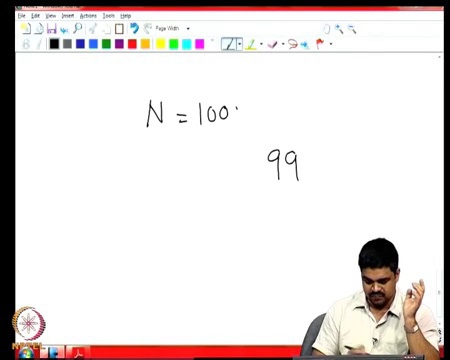 File Edit View Insert Actions Tools Help
Page Width
N = 100
99